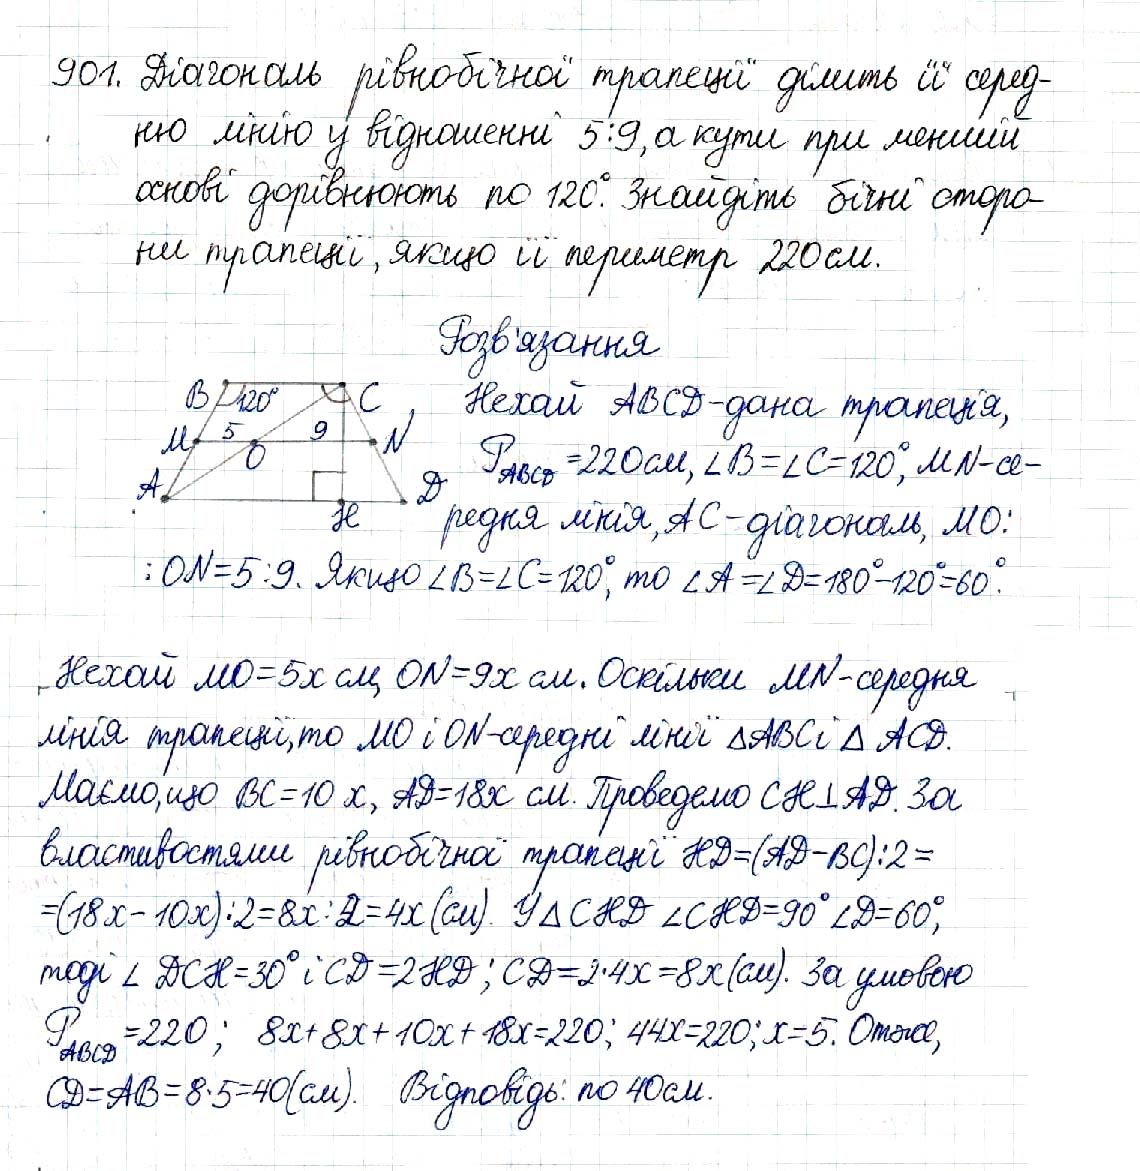 901. Діагональ рівнобічної трапеції ділить її серед-
ню лінію у відношенні 5:9, а кути при меншій
основі дорівнюють по 120°. Знайдіть бічні сторо-
ни трапеції, якщо її периметр 220 см.
Розв'язання
B 120° C , Нехай ABCD-дана трапеція,
M 5 O 9 N P ABCD =220см, ∠B=∠C=120°, MN-се-
A H D редня лінія, AC-діагональ, MO:
:ON=5:9. Якщо ∠B=∠C=120°, то ∠A=∠D=180°-120°=60°.
Нехай MO=5x см, ON=9x см. Оскільки MN-середня
лінія трапеції, то MO і ON-середні лінії △ABC і △ ACD.
Маємо, що BC=10 x, AD=18x см. Проведемо CH⊥AD. За
властивостями рівнобічної трапеції HD=(AD-BC):2=
=(18x-10x):2=8x:2=4x(см). У △CHD ∠CHD=90° ∠D=60°,
тоді ∠ DCH=30° і CD=2HD; CD=2·4x=8x(см). За умовою
P ABCD =220; 8x+8x+10x+18x=220; 44x=220; x=5. Отже,
CD=AB=8·5=40(см). Відповідь: по 40см.